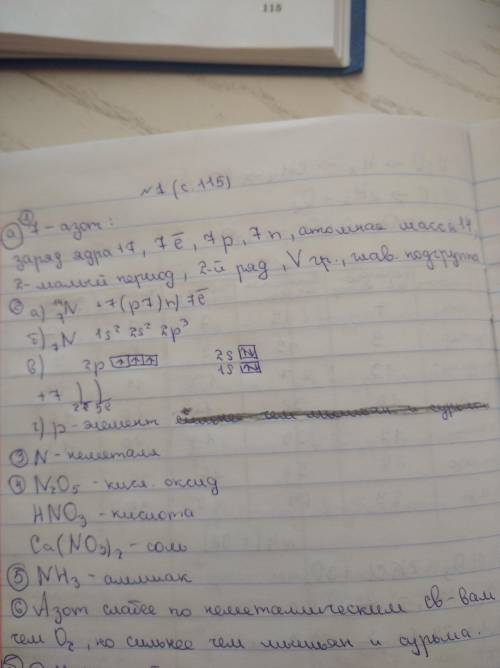 115
№1 (с. 115)
а) ① 7 - азот:
заряд ядра +7, 7ē, 7p, 7n, атомная масса 14
2-малый период, 2-й ряд, V гр., глав. подгруппа
② а) ¹⁴₇N +7(p7)n) 7ē
б) ₇N 1s² 2s² 2p³
в) 2p ↑ ↑ ↑ 2s ↑↓
1s ↑↓
+7 ) )
2ē 5ē
г) p-элемент
③ N - неметалл
④ N₂O₅ - кисл. оксид
HNO₃ - кислота
Ca(NO₃)₂ - соль
⑤ NH₃ - аммиак
⑥ Азот слабее по неметаллическим св-вам
чем O₂, но сильнее чем мышьян и сурьма.